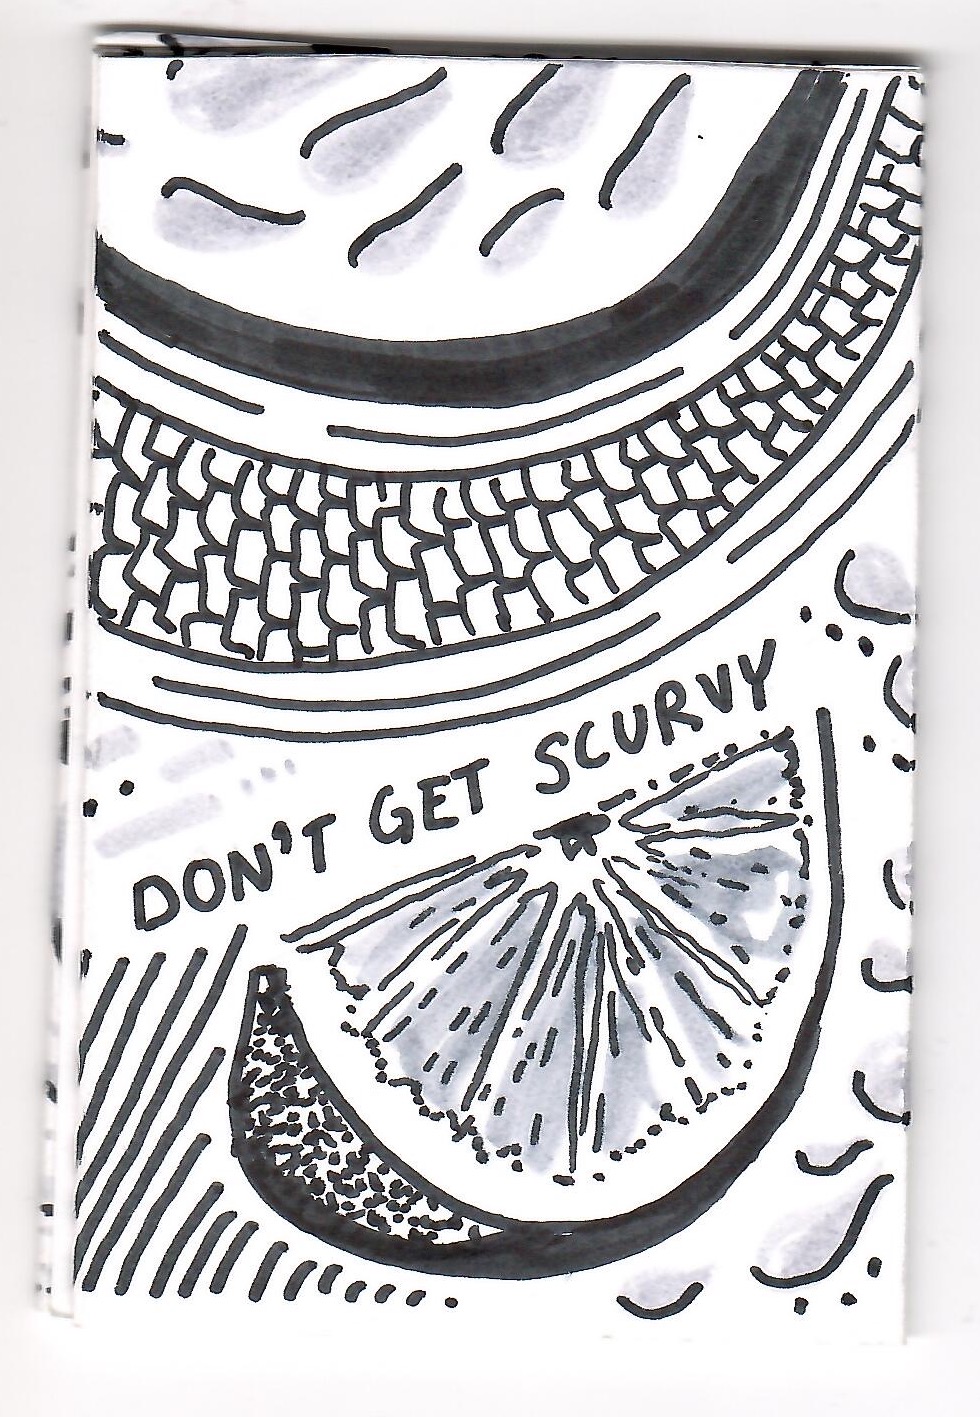 DON'T GET SCURVY